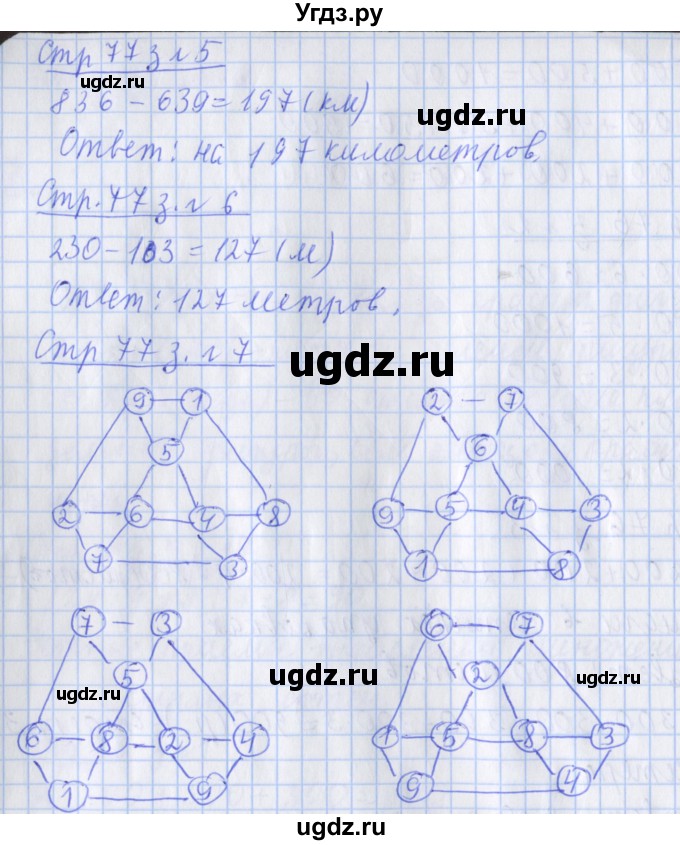 Угдз.ру
Стр 77 з. № 5
ugdz.ru
836 - 639 = 197 (км)
ugdz.ru
Ответ: на 197 километров.
Стр. 77 з. № 6
230 - 103 = 127 (м)
Ответ: 127 метров.
Стр 77 з. № 7
ugdz.ru
9 1
5
2 6 4 8
7 3
2 7
6
9 5 4 3
1 8
7 3
5
6 8 2 4
1 9
6 7
2
1 5 8 3
9 4
ugdz.ru
ugdz.ru
ugdz.ru
ugdz.ru